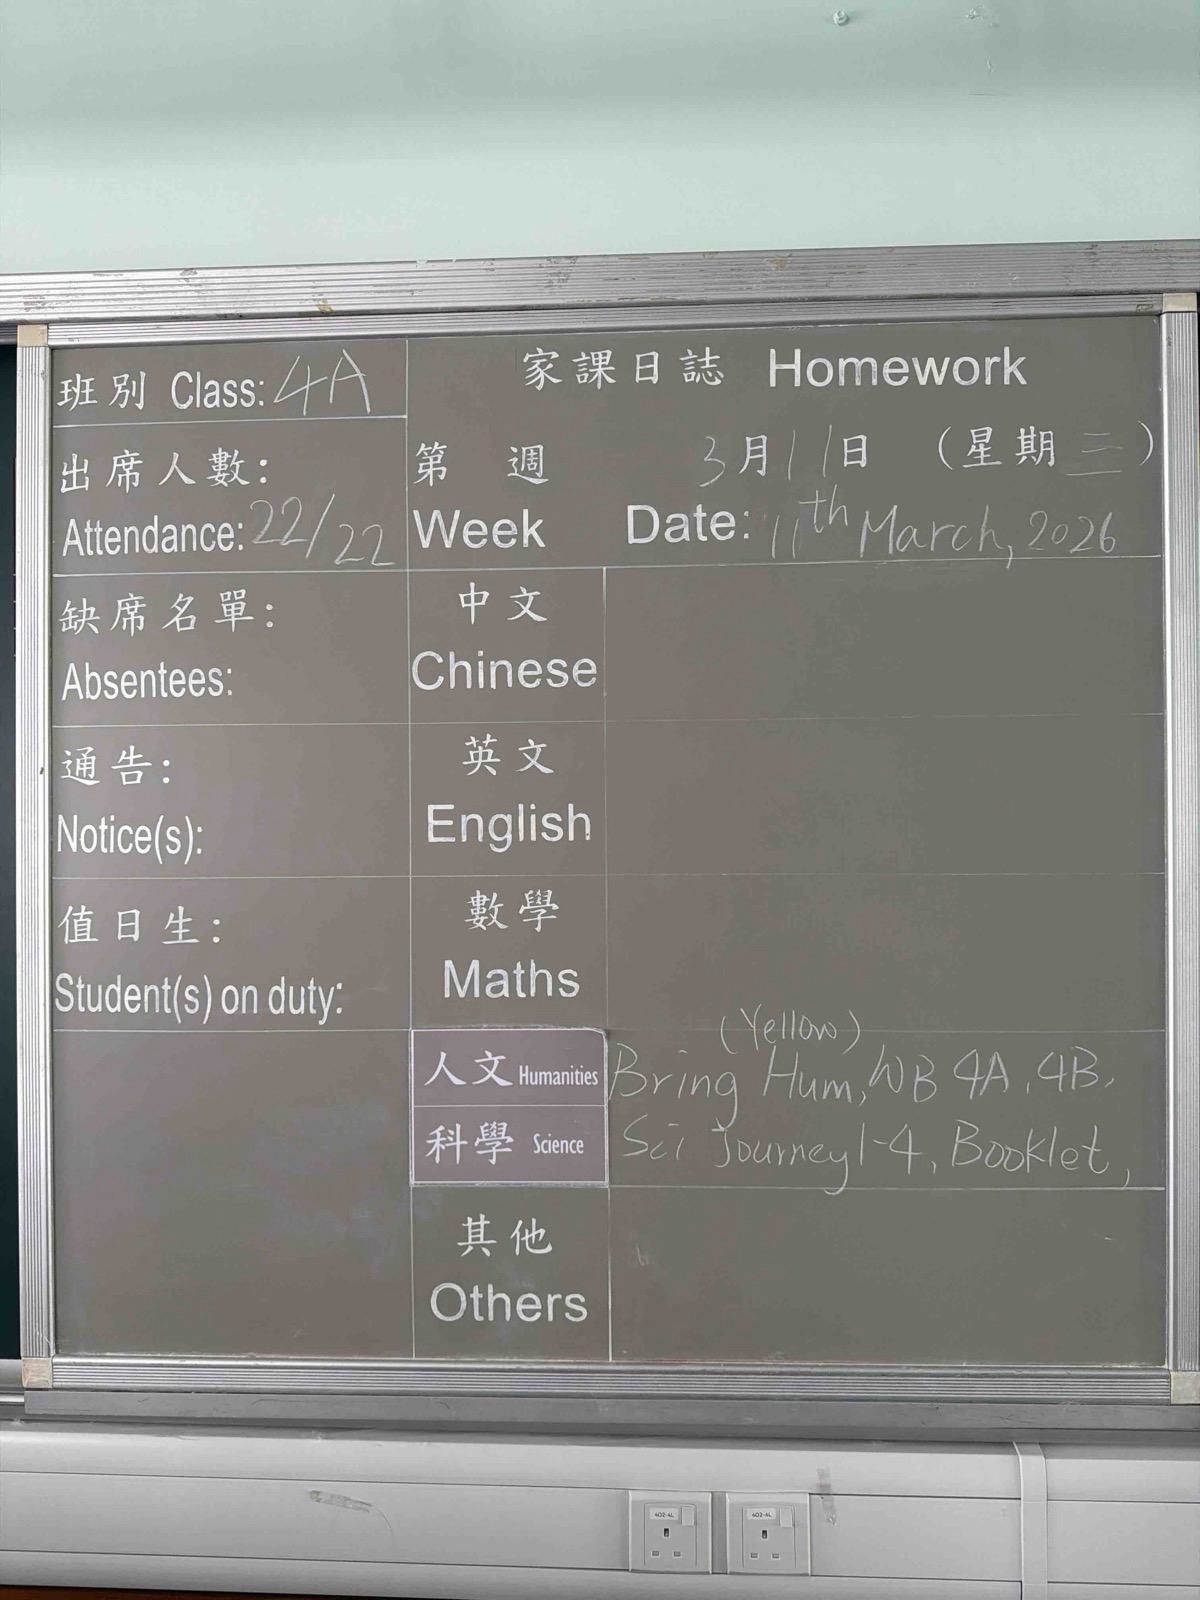 班別 Class: 4A
家課日誌 Homework
出席人數:
Attendance: 22/22
第 週 3月11日 (星期三)
Week Date: 11th March, 2026
缺席名單:
Absentees:
中文
Chinese
通告:
Notice(s):
英文
English
值日生:
Student(s) on duty:
數學
Maths
人文 Humanities
(Yellow)
Bring Hum, WB 4A, 4B,
科學 Science
Sci Journey 1-4, Booklet,
其他
Others
402-4L
402-4L